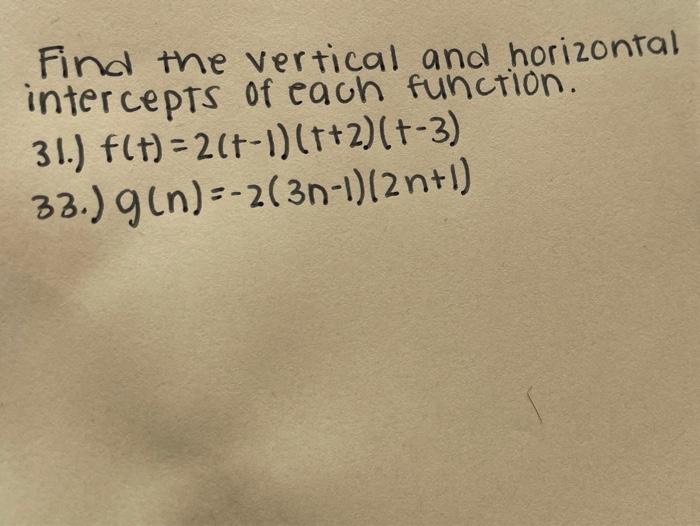 Find the vertical and horizontal
intercepts of each function.
31.) f(t) = 2(t-1)(t+2)(t-3)
33.) g(n) = -2(3n-1)(2n+1)